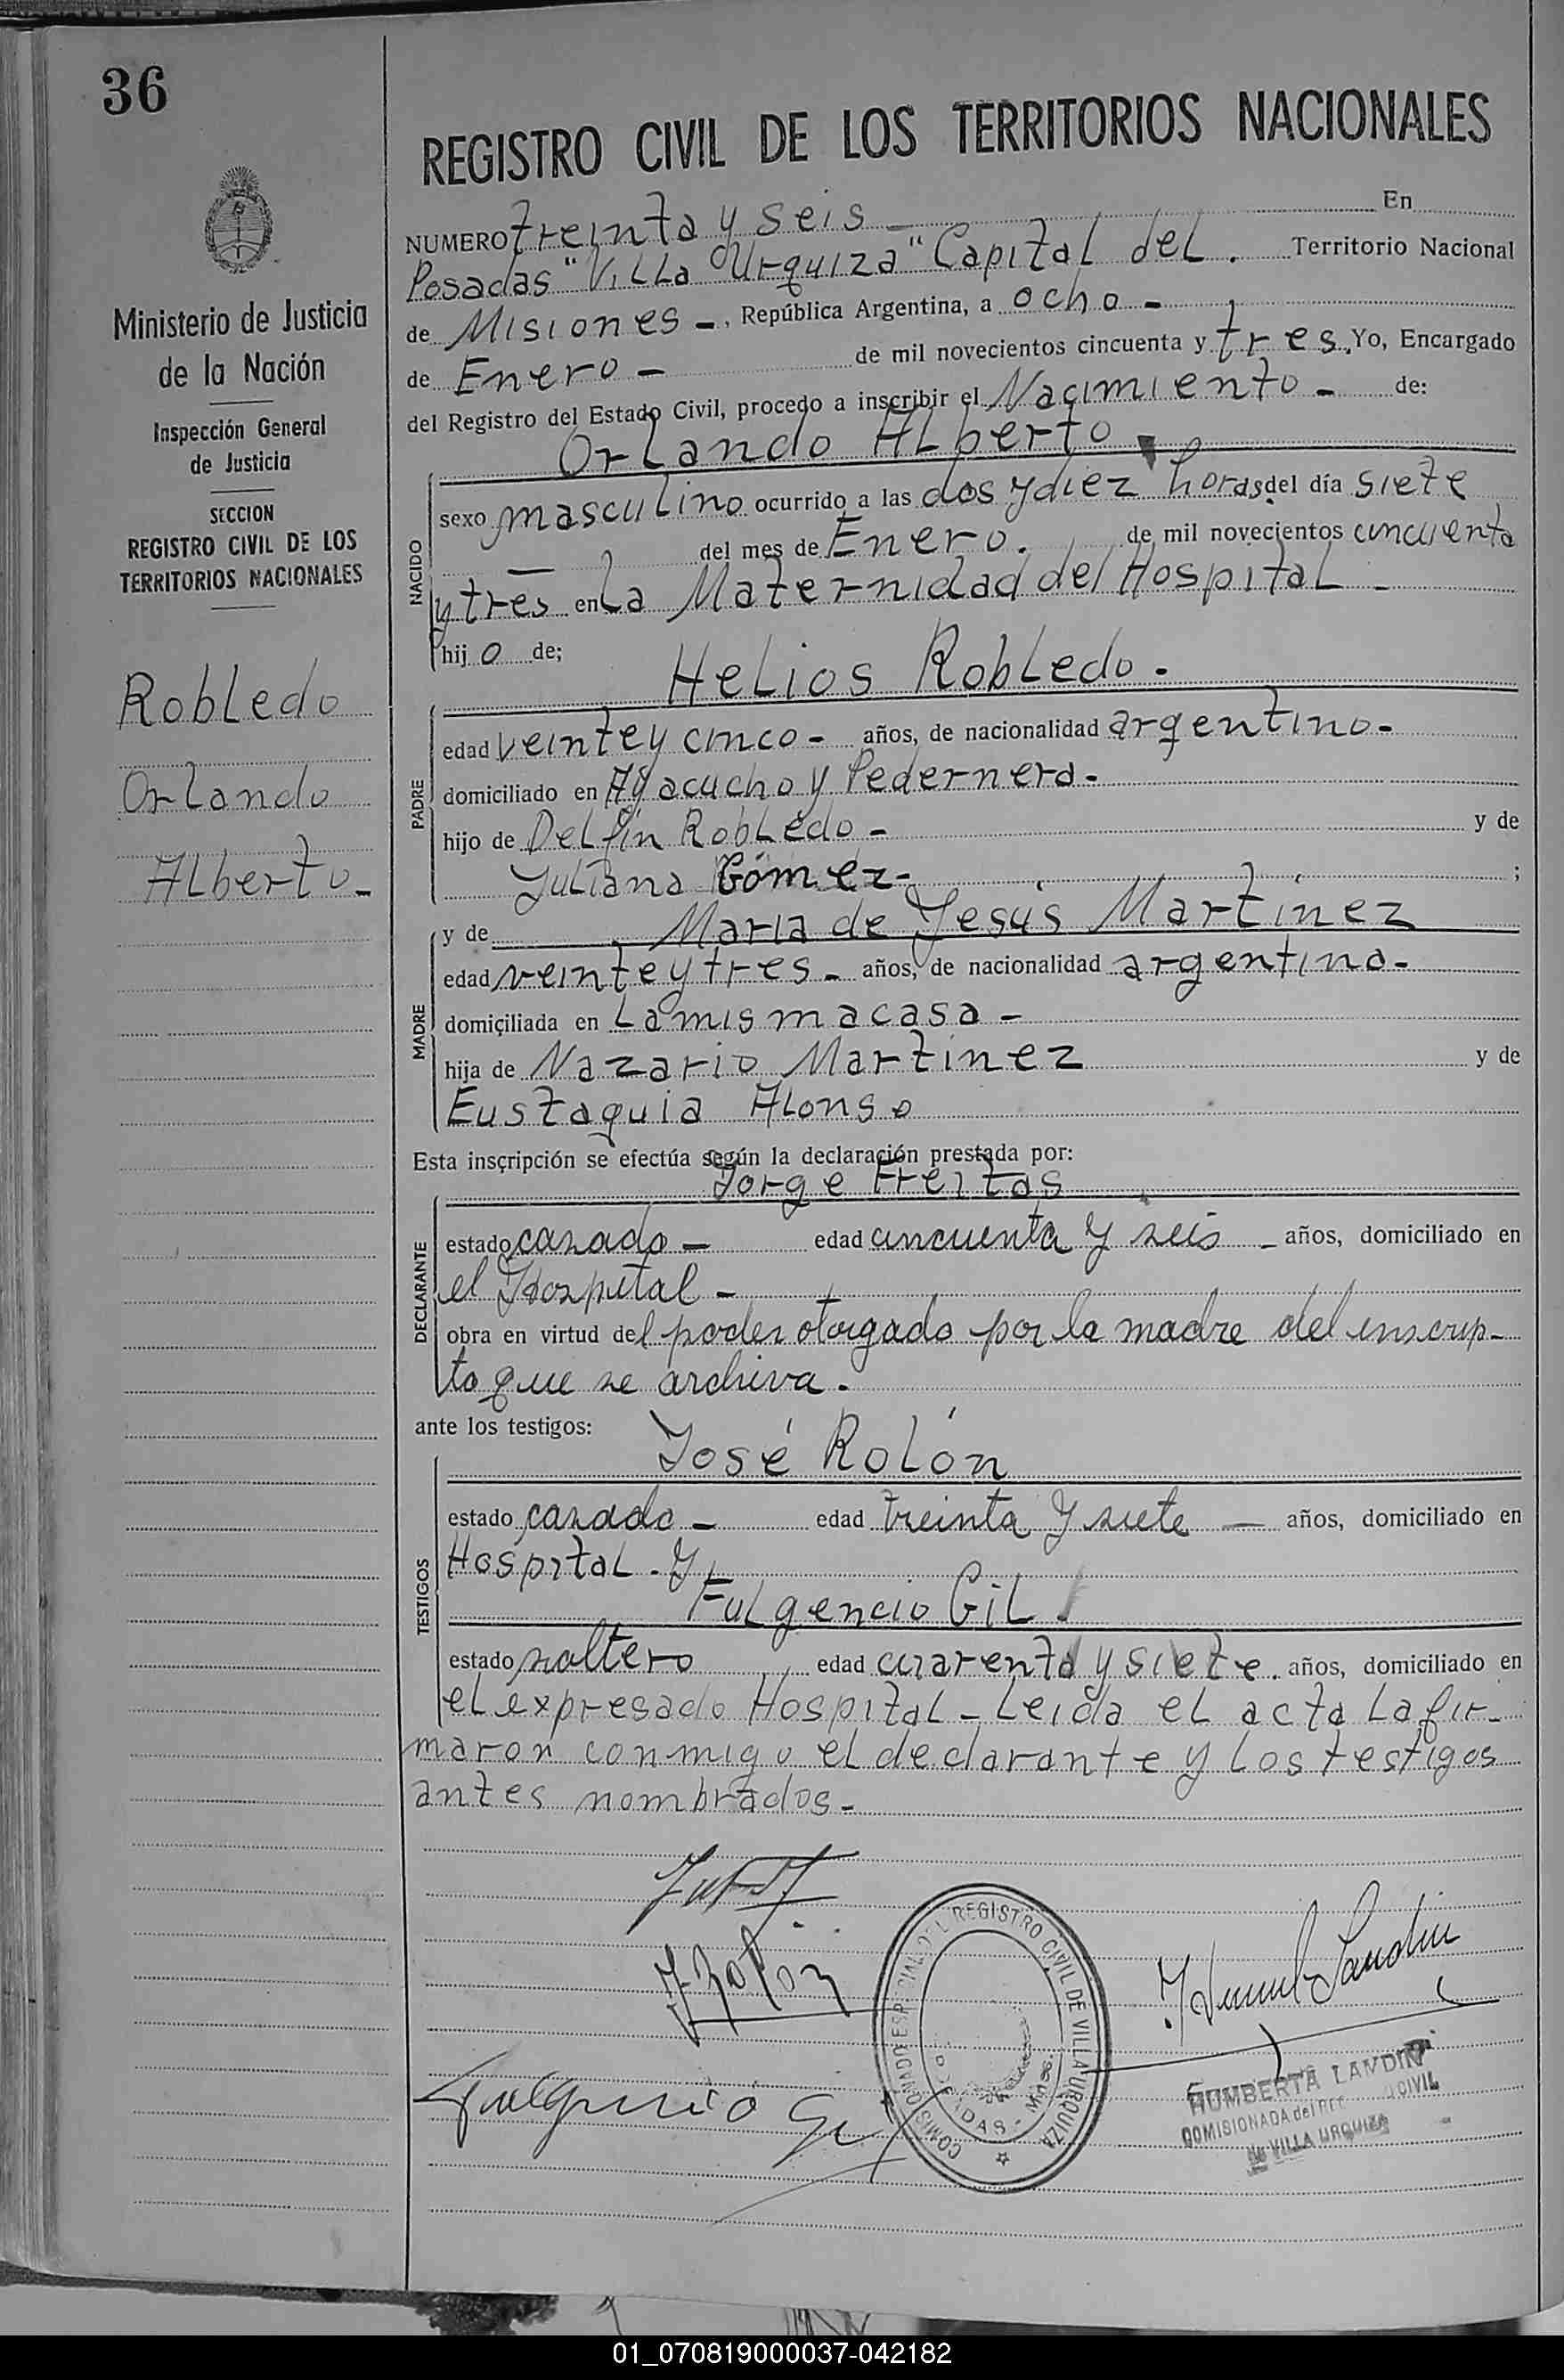 36
REGISTRO CIVIL DE LOS TERRITORIOS NACIONALES
Ministerio de Justicia
de la Nación
Inspección General
de Justicia
SECCION
REGISTRO CIVIL DE LOS
TERRITORIOS NACIONALES
Robledo
Orlando
Alberto -
NUMERO treinta y seis - En
Posadas "Villa Urquiza" Capital del . Territorio Nacional
de Misiones - , República Argentina, a ocho -
de Enero - de mil novecientos cincuenta y tres, Yo, Encargado
del Registro del Estado Civil, procedo a inscribir el Nacimiento - de:
Orlando Alberto
NACIDO
sexo masculino ocurrido a las dos y diez horas del día siete
— del mes de Enero . de mil novecientos cincuenta
y tres en La Maternidad del Hospital -
hijo de;
Helios Robledo .
PADRE
edad veinte y cinco - años, de nacionalidad argentino -
domiciliado en Ayacucho y Pedernera -
hijo de Delfín Robledo - y de
Juliana Gómez - ;
y de María de Jesús Martínez
MADRE
edad veinte y tres - años, de nacionalidad argentina -
domiciliada en La misma casa -
hija de Nazario Martínez y de
Eustaquia Alonso
Esta inscripción se efectúa según la declaración prestada por:
Jorge Freitas
DECLARANTE
estado casado - edad cincuenta y seis - años, domiciliado en
el Hospital -
obra en virtud del poder otorgado por la madre del inscrip-
to que se archiva .
ante los testigos:
José Rolón
TESTIGOS
estado casado - edad treinta y siete — años, domiciliado en
Hospital . y
Fulgencio Gil .
estado soltero edad cuarenta y siete . años, domiciliado en
el expresado Hospital - Leida el acta la fir-
maron conmigo el declarante y los testigos
antes nombrados -
J Rolón
Fulgencio Gil
COMISIONADO ESPECIAL DEL REGISTRO CIVIL DE VILLA URQUIZA
POSADAS - Mnes.
HUMBERTA LANDIN
COMISIONADA del REG CIVIL
de VILLA URQUIZA
01_070819000037-042182